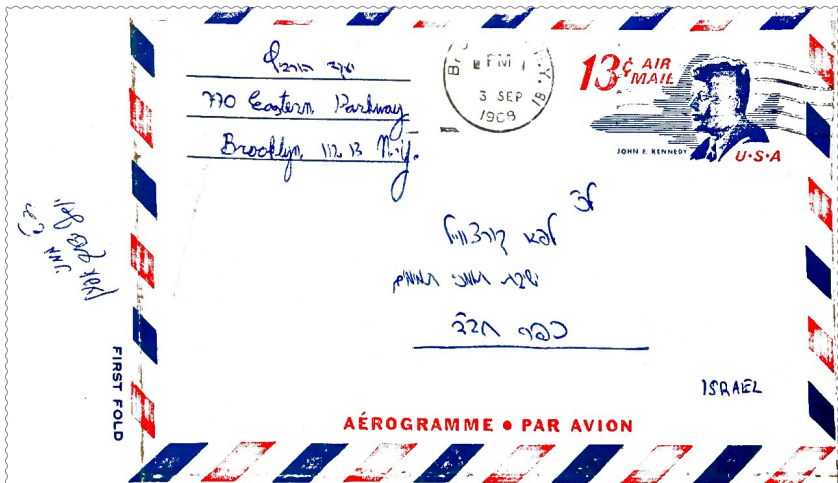 770 Eastern Parkway
Brooklyn, 11213 N.Y.
PM
3 SEP
1968
13¢ AIR
MAIL
JOHN F. KENNEDY
U·S·A
ליפא קורצווייל
ישיבת תומכי תמימים
כפר חב"ד
ISRAEL
FIRST FOLD
AÉROGRAMME • PAR AVION